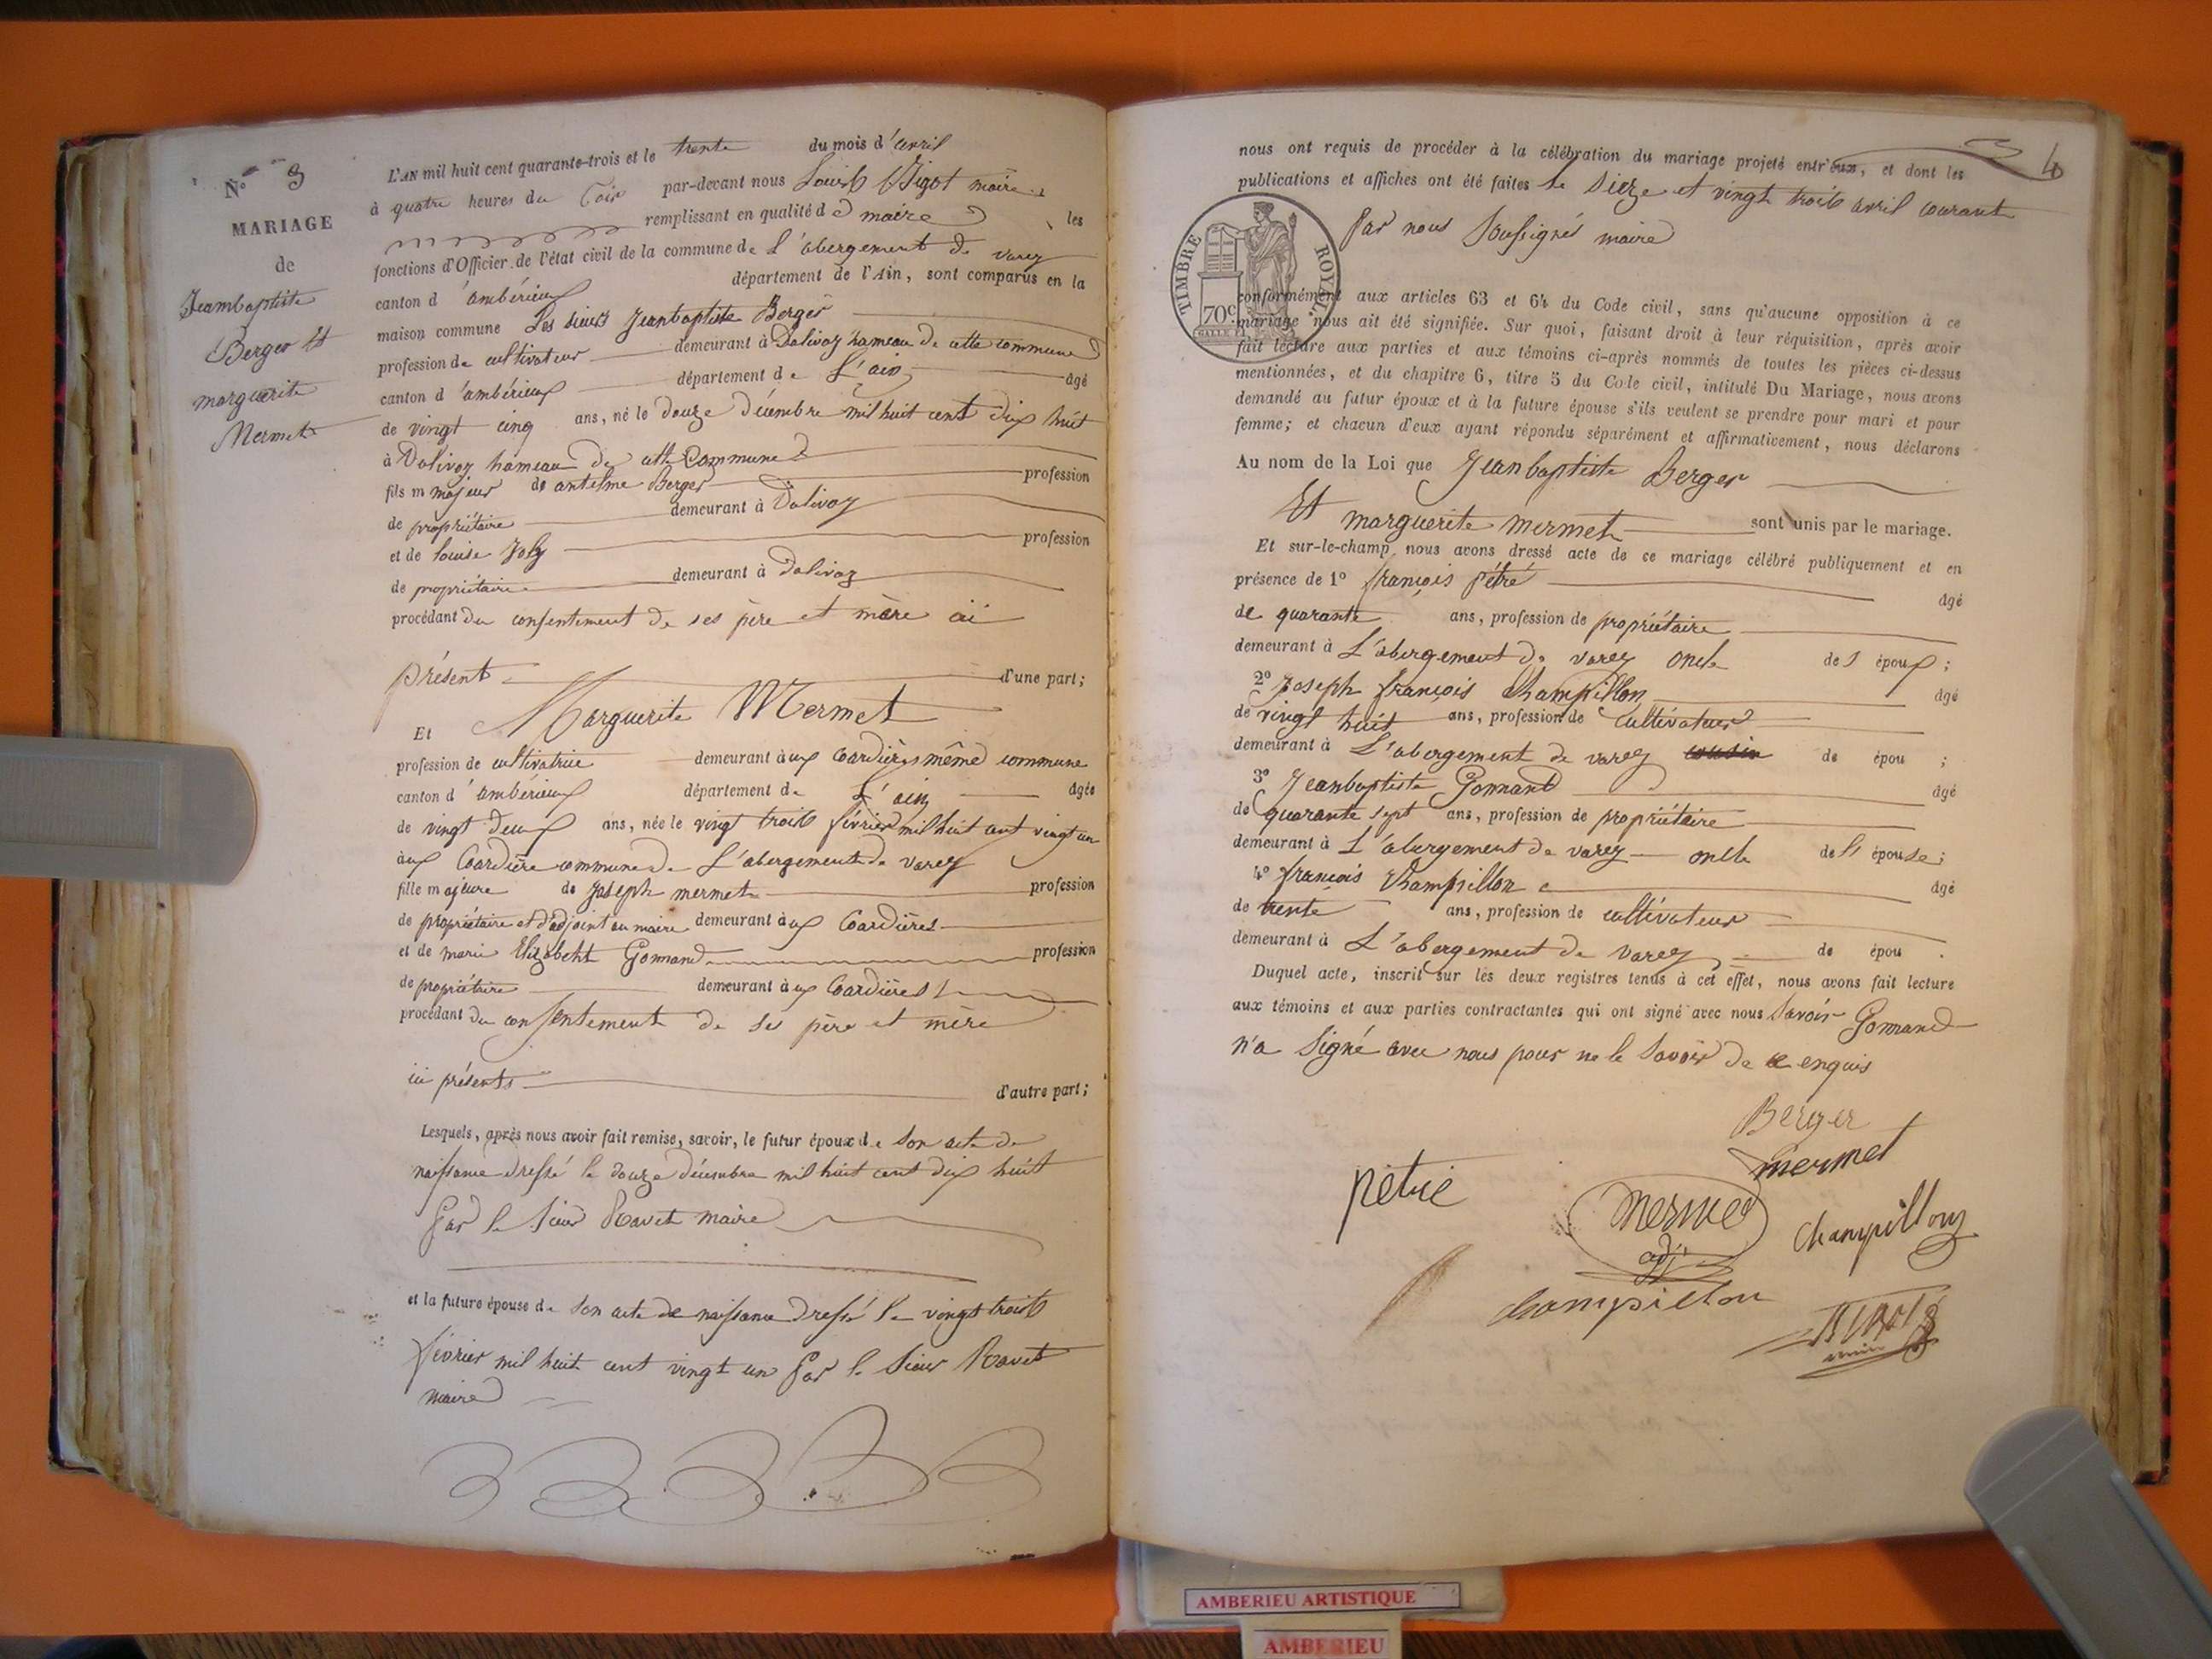 N° 3
MARIAGE
de
Jeanbaptiste
Berger Et
marguerite
Mermet
L'AN mil huit cent quarante-trois et le trente du mois d'avril
à quatre heures du soir par-devant nous Louis maire
remplissant en qualité de maire les
fonctions d'Officier de l'état civil de la commune de L'abergement de varey
canton d'ambérieux département de l'Ain, sont comparus en la
maison commune Les sieurs Jeanbaptiste Berger
profession de cultivateur demeurant à Dalivoy hameau de cette commune
canton d'ambérieux département de L'ain âgé
de vingt cinq ans, né le douze Décembre mil huit cent dix huit
à Dalivoy hameau de cette Commune
fils majeur de antelme Berger profession
de propriétaire demeurant à Dalivoy
et de Louise Joly profession
de propriétaire demeurant à Dalivoy
procédant du consentement de ses père et mère ici
présent d'une part;
Et Marguerite Mermet
profession de cultivatrice demeurant aux Cardières même commune
canton d'ambérieux département de L'ain âgée
de vingt deux ans, née le vingt trois février mil huit cent vingt un
aux Cardière commune de L'abergement de varey
fille majeure de Joseph mermet profession
de propriétaire et d'adjoint au maire demeurant aux Cardières
et de marie Elizabeht Gonnand profession
de propriétaire demeurant aux Cardières
procédant du consentement de ses père et mère
ici présents d'autre part;
Lesquels, après nous avoir fait remise, savoir, le futur époux de son acte de
naissance dressé le douze décembre mil huit cent dix huit
Par le sieur Ravet maire
et la future épouse de son acte de naissance dressé le vingt trois
février mil huit cent vingt un Par le sieur Ravet
maire
4
nous ont requis de procéder à la célébration du mariage projeté entr'eux, et dont les
publications et affiches ont été faites le seize et vingt trois avril courant
Par nous soussigné maire
TIMBRE ROYAL
70c
conformément aux articles 63 et 64 du Code civil, sans qu'aucune opposition à ce
mariage nous ait été signifiée. Sur quoi, faisant droit à leur réquisition, après avoir
fait lecture aux parties et aux témoins ci-après nommés de toutes les pièces ci-dessus
mentionnées, et du chapitre 6, titre 5 du Code civil, intitulé Du Mariage, nous avons
demandé au futur époux et à la future épouse s'ils veulent se prendre pour mari et pour
femme; et chacun d'eux ayant répondu séparément et affirmativement, nous déclarons
Au nom de la Loi que Jeanbaptiste Berger
Et marguerite mermet sont unis par le mariage.
Et sur-le-champ nous avons dressé acte de ce mariage célébré publiquement et en
présence de 1° françois Pétré âgé
de quarante ans, profession de propriétaire
demeurant à L'abergement de varey oncle de l'époux;
2° Joseph françois Champillon âgé
de vingt huit ans, profession de cultivateur
demeurant à L'abergement de varey cousin de épou ;
3° Jeanbaptiste Gonnand âgé
de quarante sept ans, profession de propriétaire
demeurant à L'abergement de varey oncle de l'épouse;
4° françois Champillon âgé
de trente ans, profession de cultivateur
demeurant à L'abergement de varey de épou .
Duquel acte, inscrit sur les deux registres tenus à cet effet, nous avons fait lecture
aux témoins et aux parties contractantes qui ont signé avec nous savoir Gonnand
n'a signé avec nous pour ne le savoir de ce enquis
Berger
mermet
petré
Mermet
adj
champillon
champillon
AMBERIEU ARTISTIQUE
AMBERIEU